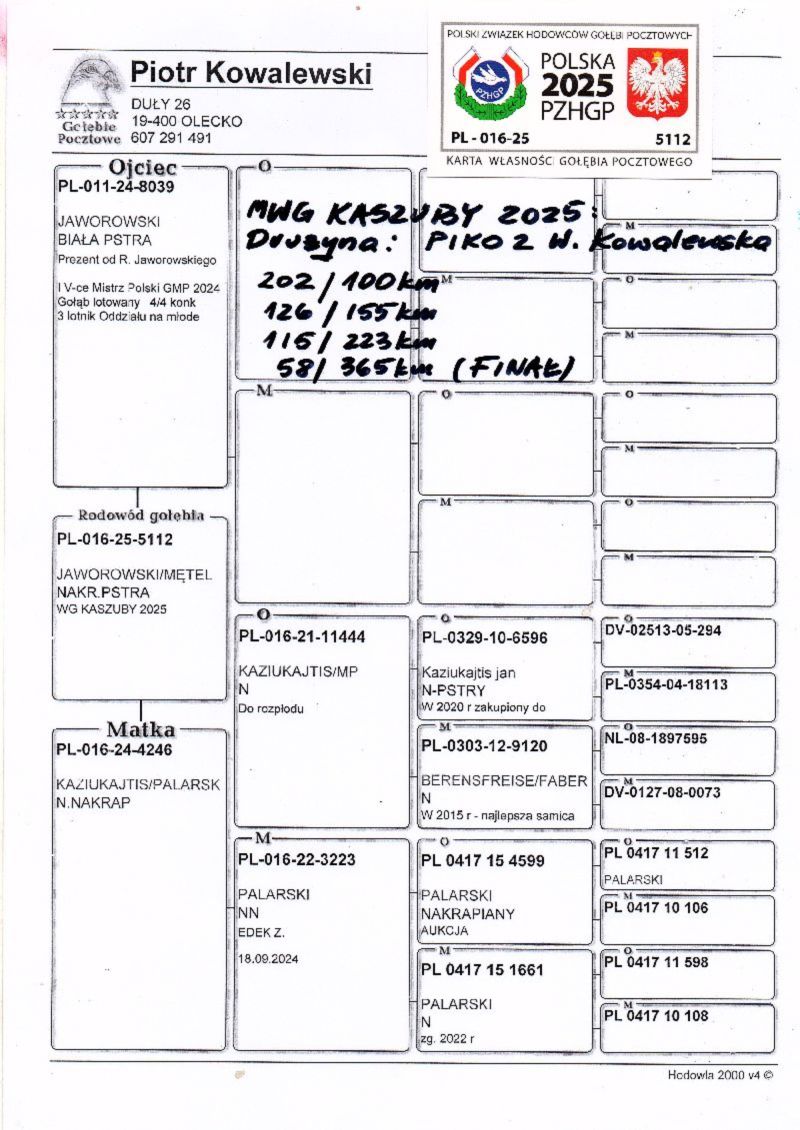 POLSKI ZWIĄZEK HODOWCÓW GOŁĘBI POCZTOWYCH
PZHGP
POLSKA
2025
PZHGP
PL - 016-25 5112
KARTA WŁASNOŚCI GOŁĘBIA POCZTOWEGO
Gołębie
Pocztowe
Piotr Kowalewski
DUŁY 26
19-400 OLECKO
607 291 491
Ojciec
PL-011-24-8039
JAWOROWSKI
BIAŁA PSTRA
Prezent od R. Jaworowskiego
I V-ce Mistrz Polski GMP 2024
Gołąb lotowany 4/4 konk
3 lotnik Oddziału na młode
Rodowód gołębia
PL-016-25-5112
JAWOROWSKI/MĘTEL
NAKR.PSTRA
WG KASZUBY 2025
Matka
PL-016-24-4246
KAZIUKAJTIS/PALARSK
N.NAKRAP
O
MWG KASZUBY 2025:
Drużyna: PIKO 2 W. Kowalewska
202 / 100 km
126 / 155 km
115 / 223 km
58 / 365 km (FINAŁ)
M
O
PL-016-21-11444
KAZIUKAJTIS/MP
N
Do rozpłodu
M
PL-016-22-3223
PALARSKI
NN
EDEK Z.
18.09.2024
M
O
M
O
PL-0329-10-6596
Kaziukajtis jan
N-PSTRY
W 2020 r zakupiony do
M
PL-0303-12-9120
BERENSFREISE/FABER
N
W 2015 r - najlepsza samica
O
PL 0417 15 4599
PALARSKI
NAKRAPIANY
AUKCJA
M
PL 0417 15 1661
PALARSKI
N
zg. 2022 r
M
O
M
O
M
O
M
O
DV-02513-05-294
M
PL-0354-04-18113
O
NL-08-1897595
M
DV-0127-08-0073
O
PL 0417 11 512
PALARSKI
M
PL 0417 10 106
O
PL 0417 11 598
M
PL 0417 10 108
Hodowla 2000 v4 ©